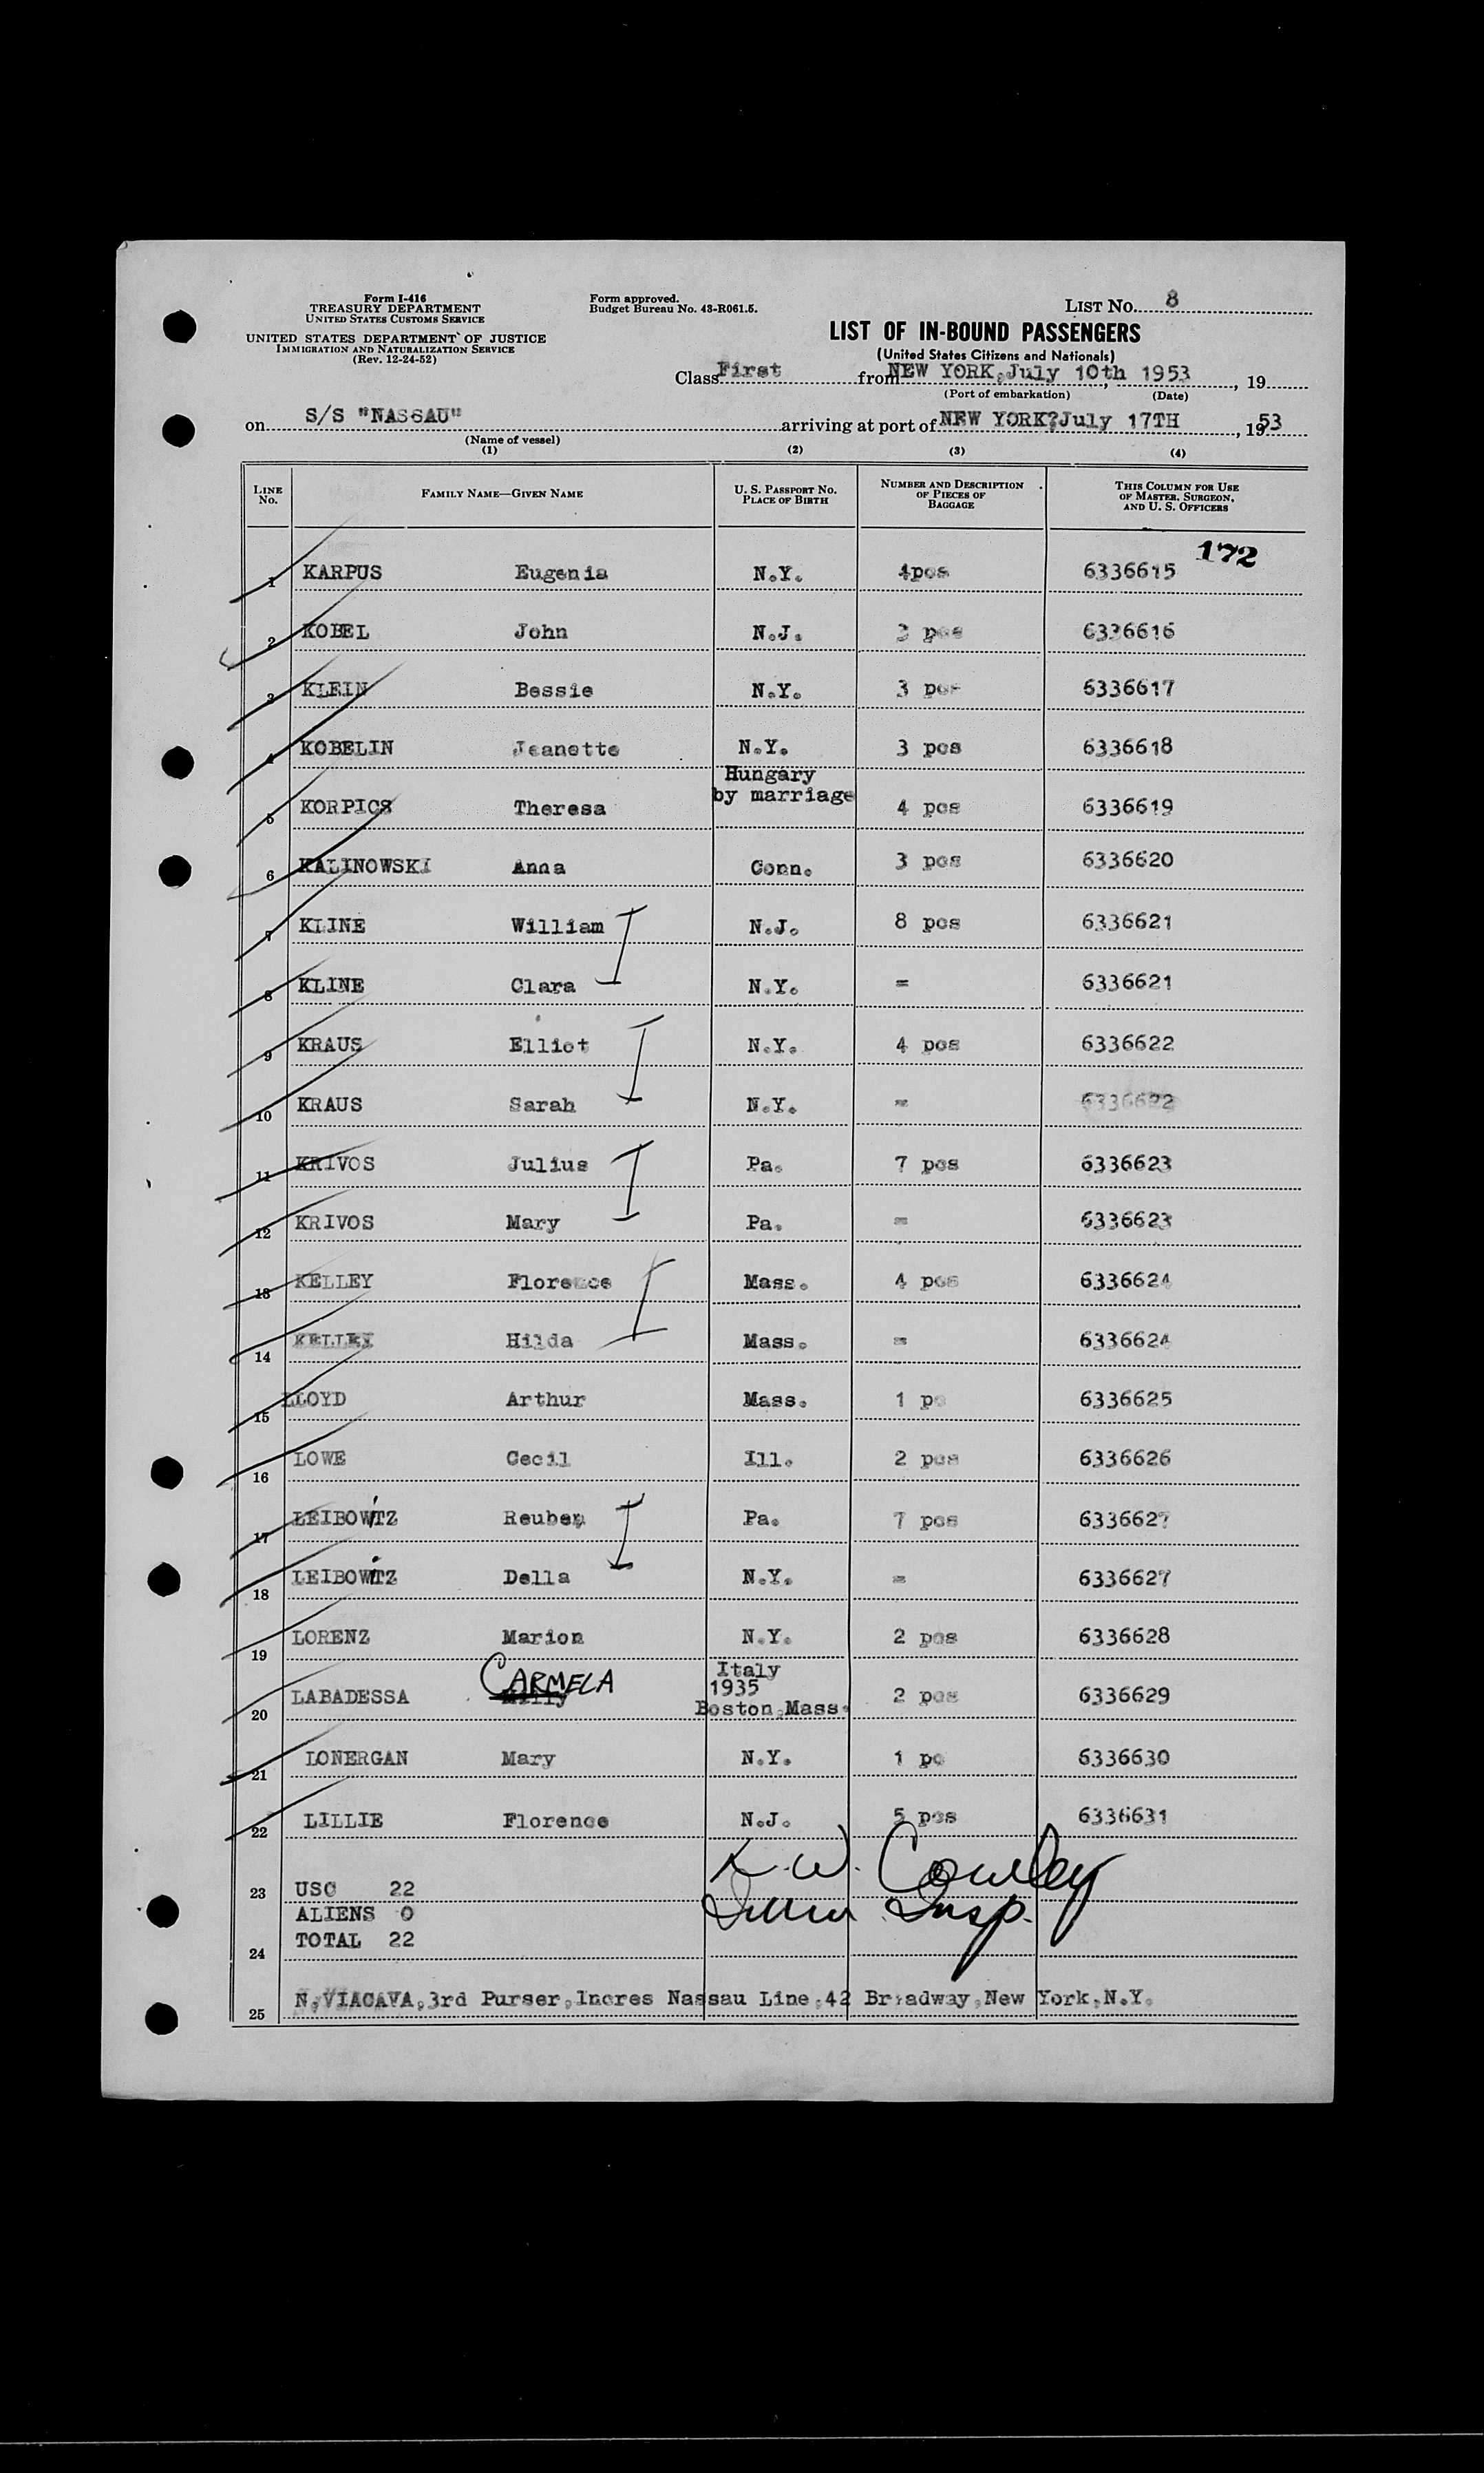 Form I-416
TREASURY DEPARTMENT
UNITED STATES CUSTOMS SERVICE
UNITED STATES DEPARTMENT OF JUSTICE
IMMIGRATION AND NATURALIZATION SERVICE
(Rev. 12-24-52)
Form approved.
Budget Bureau No. 43-R061.5.
LIST No. 8
LIST OF IN-BOUND PASSENGERS
(United States Citizens and Nationals)
Class First from NEW YORK, July 10th 1953, 19
(Port of embarkation) (Date)
on S/S "NASSAU" arriving at port of NEW YORK?July 17TH, 1953
(Name of vessel)
(1) (2) (3) (4)
LINE No. FAMILY NAME—GIVEN NAME U. S. PASSPORT No. PLACE OF BIRTH NUMBER AND DESCRIPTION OF PIECES OF BAGGAGE THIS COLUMN FOR USE OF MASTER, SURGEON, AND U. S. OFFICERS
172
1 KARPUS Eugenia N.Y. 4pcs 6336615
2 KOBEL John N.J. 3 pcs 6336616
3 KLEIN Bessie N.Y. 3 pcs 6336617
4 KOBELIN Jeanette N.Y. 3 pcs 6336618
5 KORPICS Theresa Hungary by marriage 4 pcs 6336619
6 KALINOWSKI Anna Conn. 3 pcs 6336620
7 KLINE William N.J. 8 pcs 6336621
8 KLINE Clara N.Y. = 6336621
9 KRAUS Elliot N.Y. 4 pcs 6336622
10 KRAUS Sarah N.Y. = 6336622
11 KRIVOS Julius Pa. 7 pcs 6336623
12 KRIVOS Mary Pa. = 6336623
13 KELLEY Florence Mass. 4 pcs 6336624
14 KELLEY Hilda Mass. = 6336624
15 LLOYD Arthur Mass. 1 pc 6336625
16 LOWE Cecil Ill. 2 pcs 6336626
17 LEIBOWITZ Reuben Pa. 7 pcs 6336627
18 LEIBOWITZ Della N.Y. = 6336627
19 LORENZ Marion N.Y. 2 pcs 6336628
20 LABADESSA CARMELA Italy 1935 Boston,Mass. 2 pcs 6336629
21 LONERGAN Mary N.Y. 1 pc 6336630
22 LILLIE Florence N.J. 5 pcs 6336631
23 USC 22
ALIENS 0
24 TOTAL 22
Cowley
Insp.
25 N.VIACAVA,3rd Purser,Incres Nassau Line,42 Broadway,New York,N.Y.